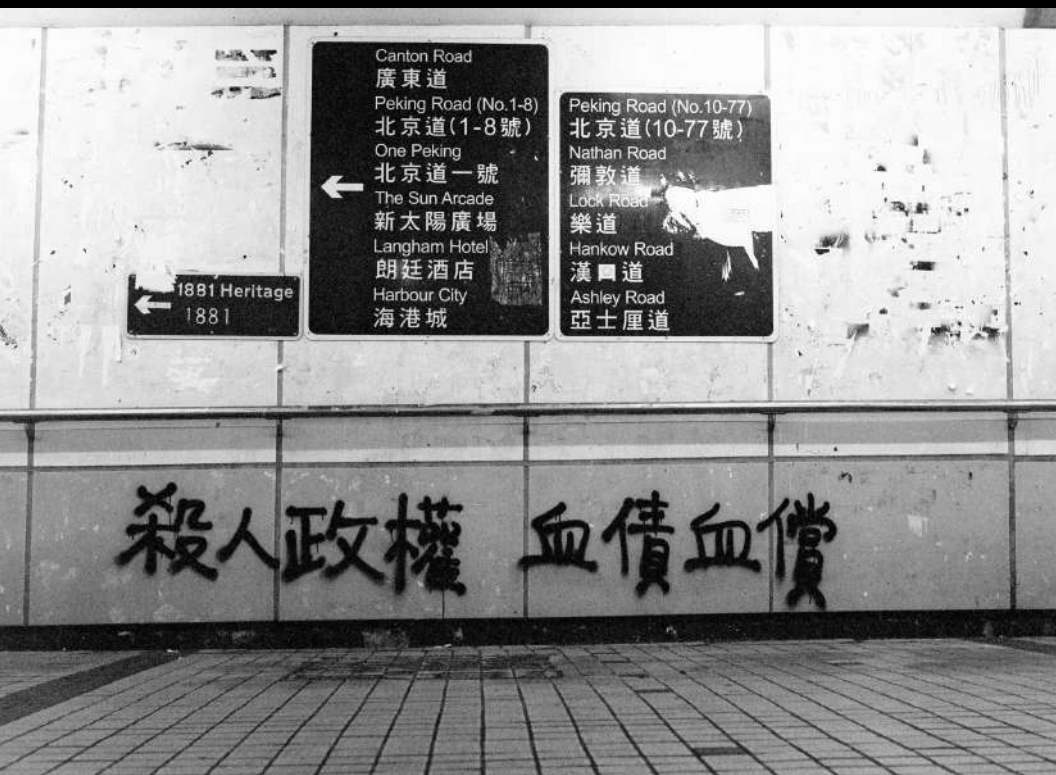 Canton Road
廣東道
Peking Road (No.1-8)
北京道(1-8號)
One Peking
北京道一號
The Sun Arcade
新太陽廣場
Langham Hotel
朗廷酒店
Harbour City
海港城
Peking Road (No.10-77)
北京道(10-77號)
Nathan Road
彌敦道
Lock Road
樂道
Hankow Road
漢口道
Ashley Road
亞士厘道
1881 Heritage
1881
殺人政權 血債血償